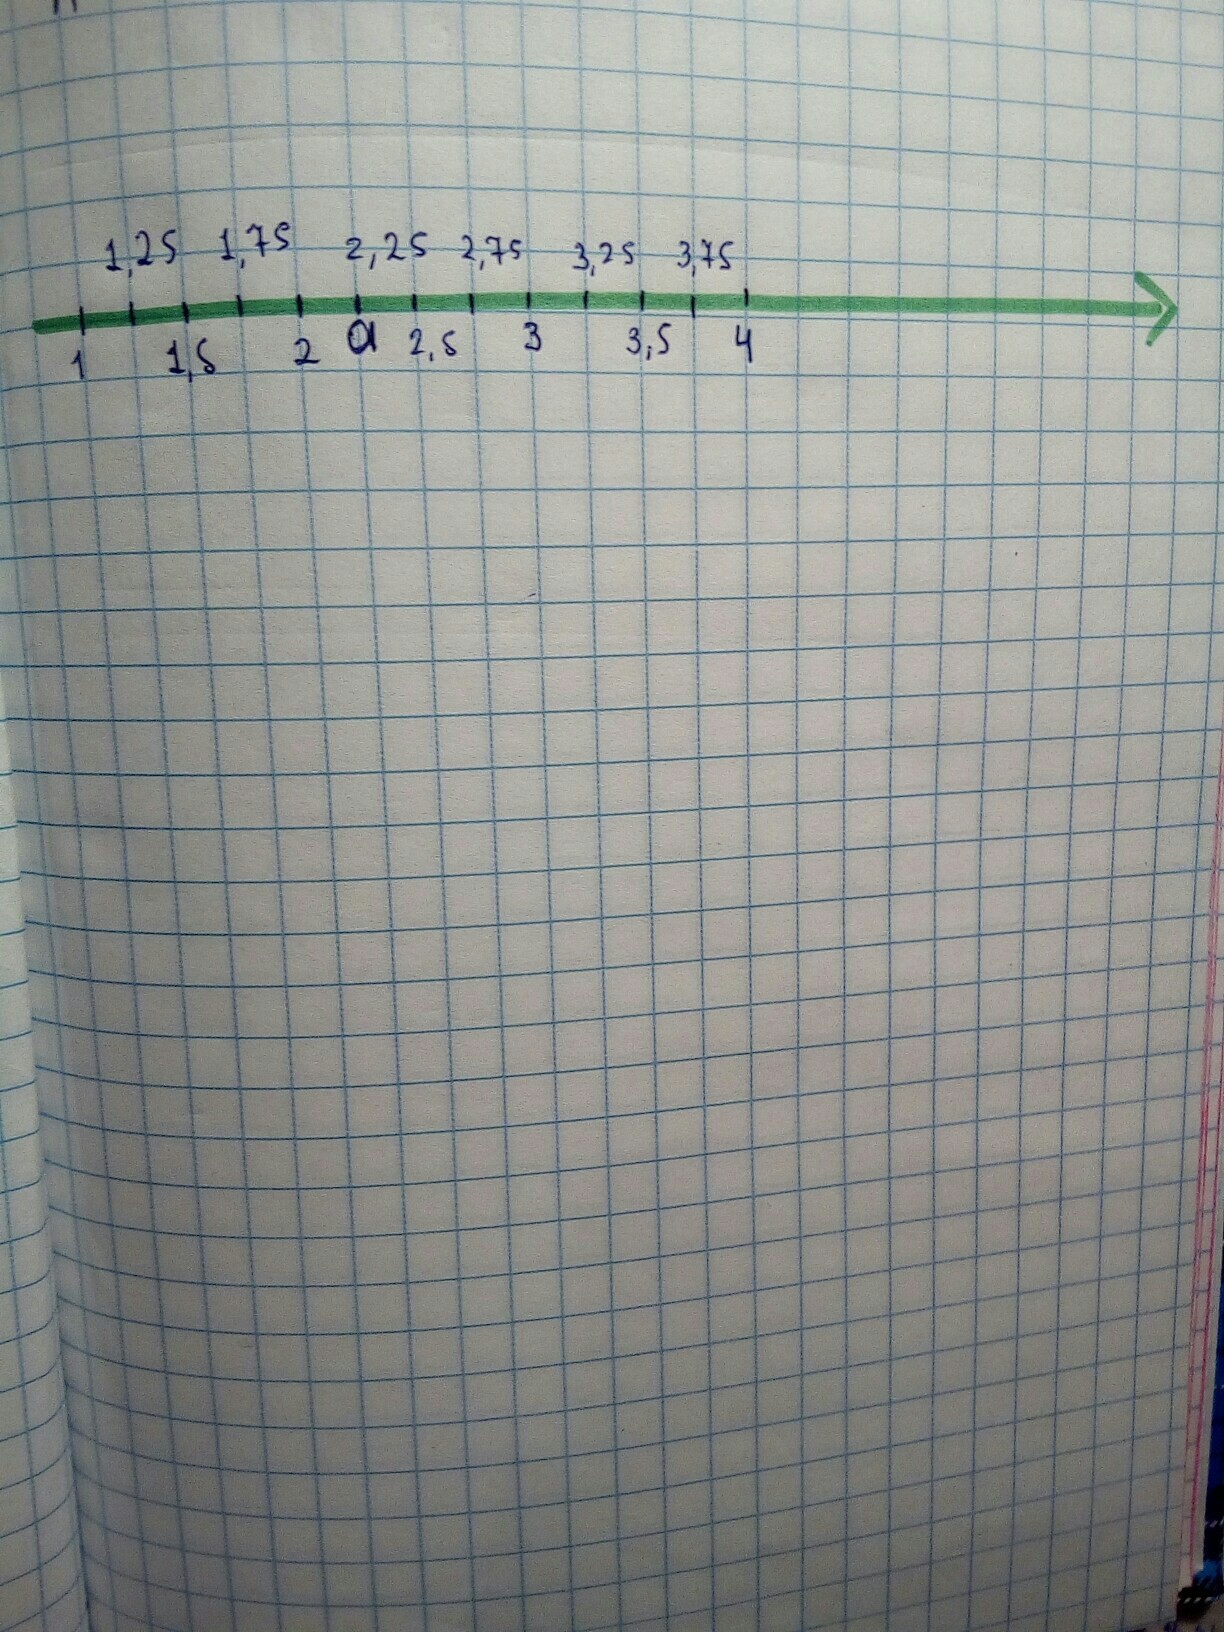 1,25 1,75 2,25 2,75 3,25 3,75
1 1,5 2 a 2,5 3 3,5 4